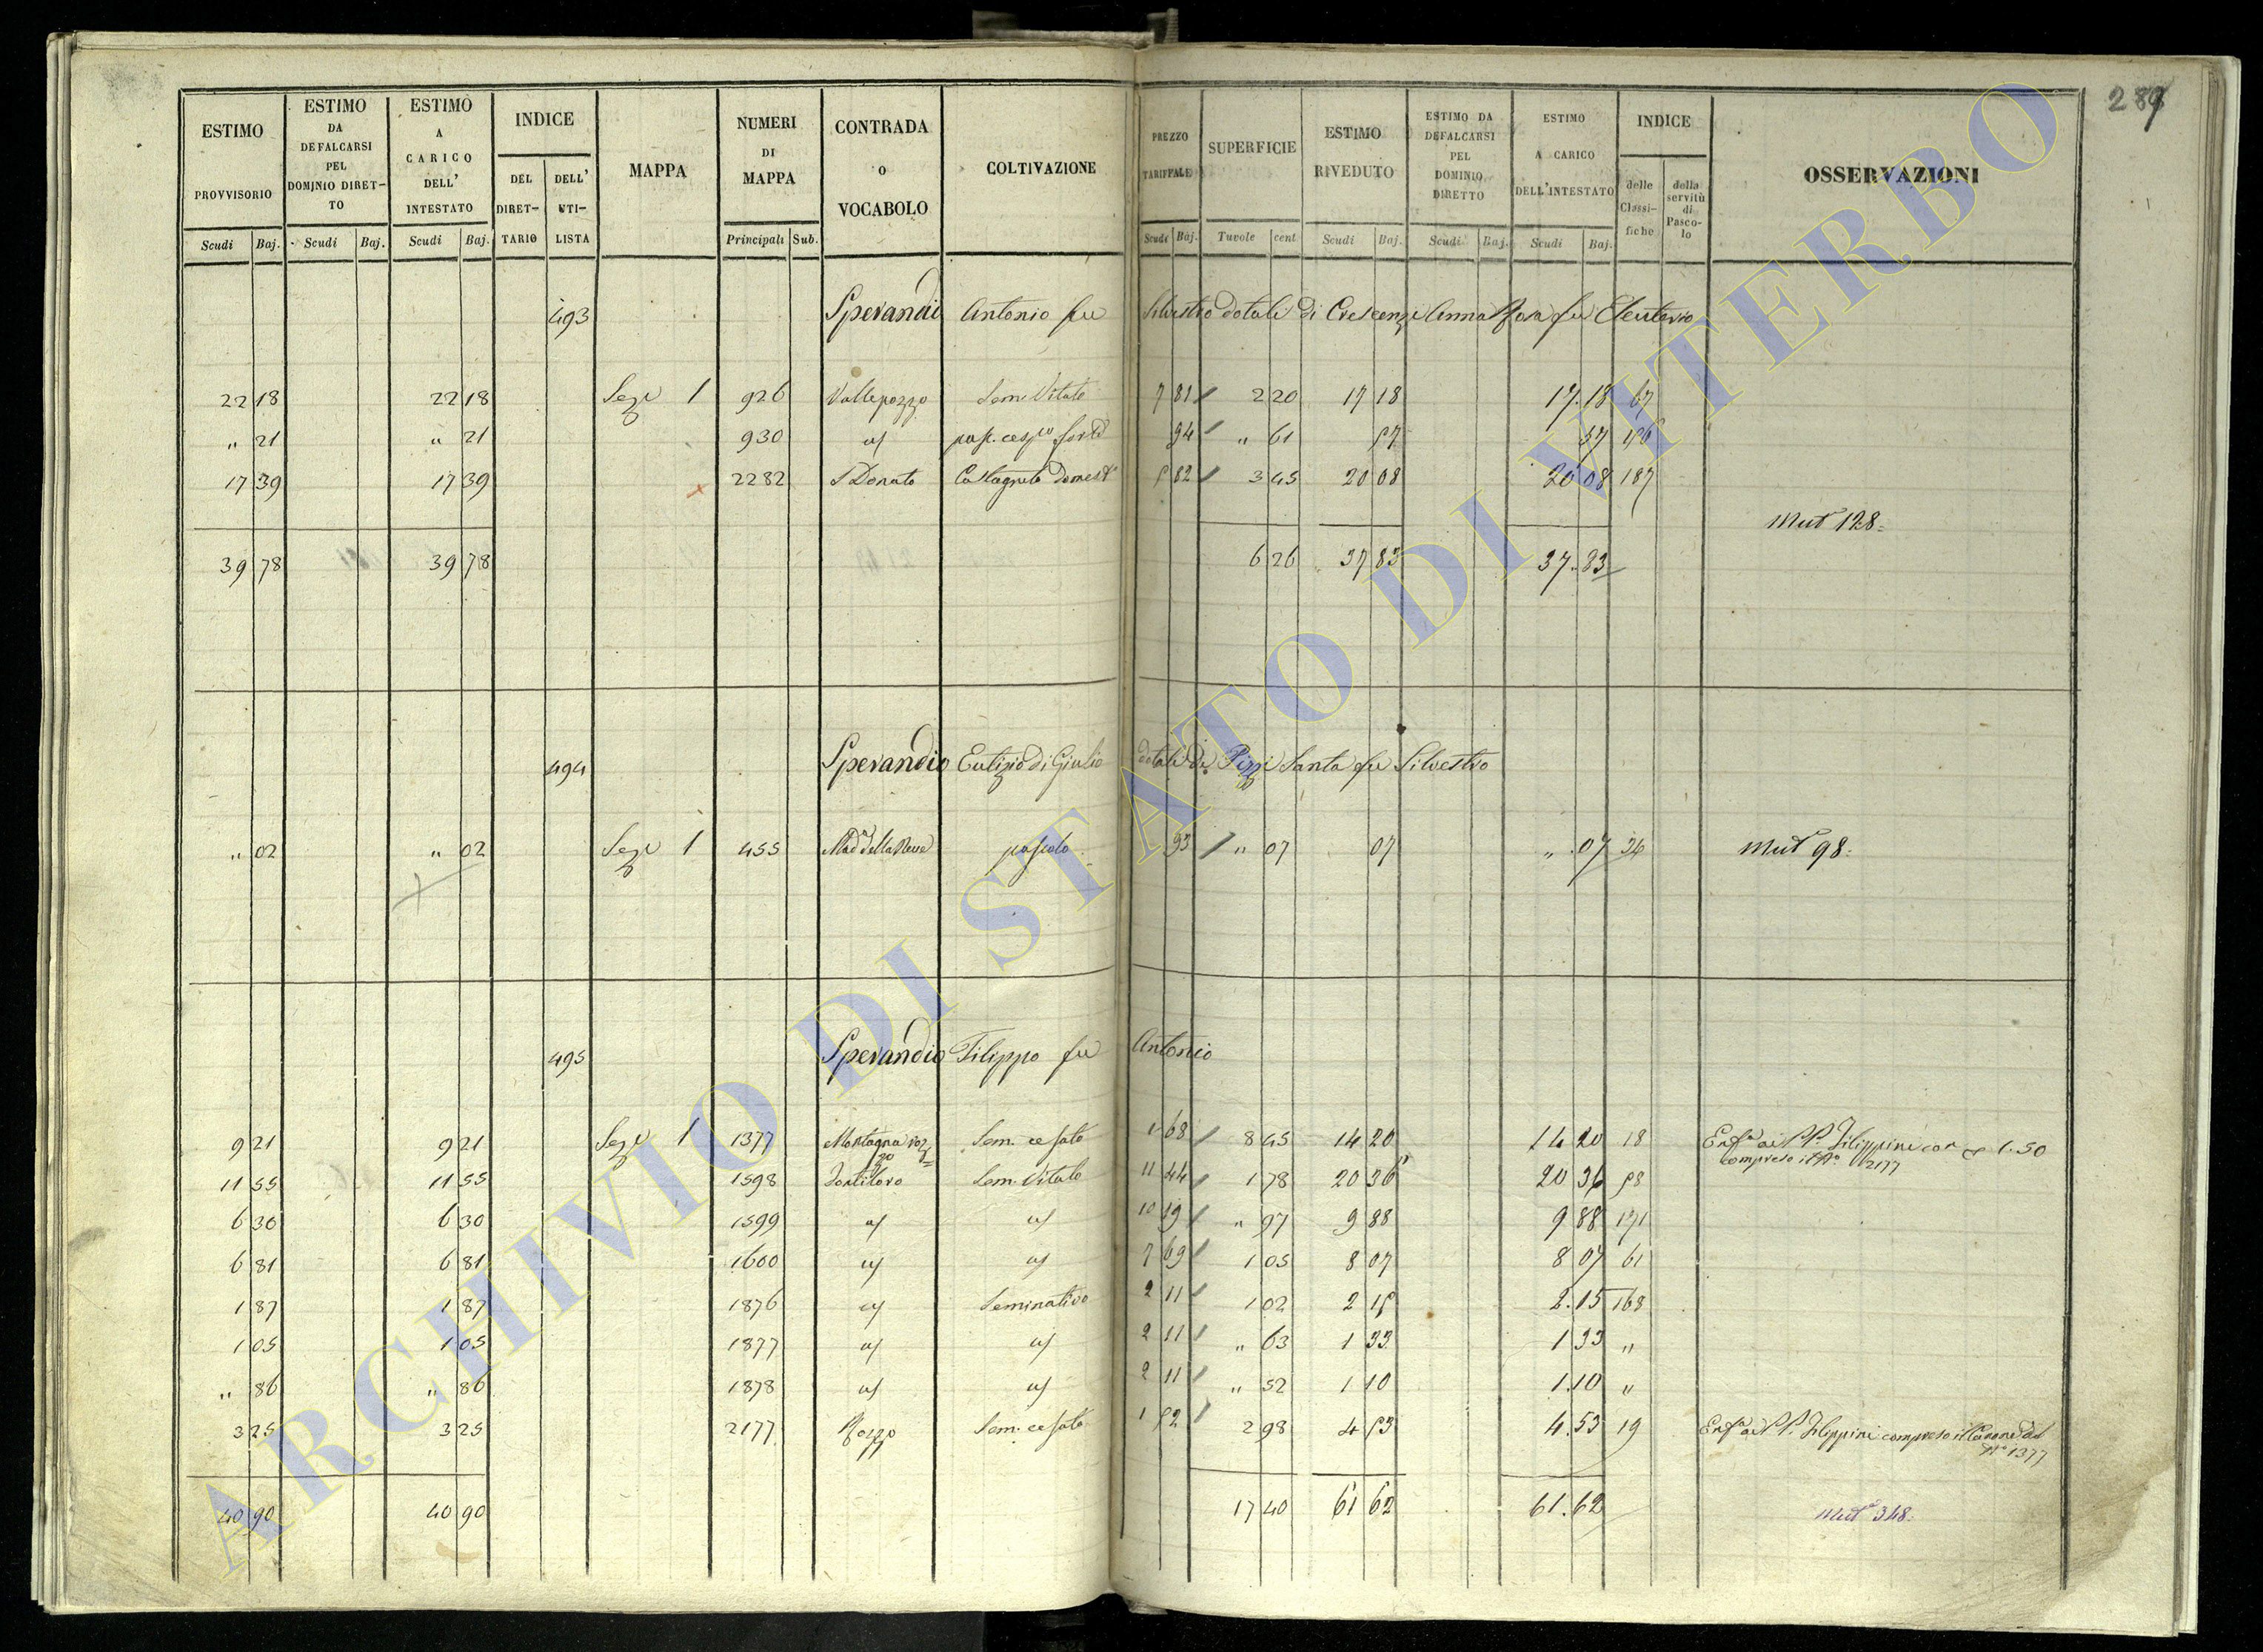 289
ESTIMO PROVVISORIO Scudi Baj.
ESTIMO DA DEFALCARSI PEL DOMINIO DIRETTO Scudi Baj.
ESTIMO A CARICO DELL' INTESTATO Scudi Baj.
INDICE DEL DIRETTARIO DELL' UTILISTA
MAPPA
NUMERI DI MAPPA Principali Sub.
CONTRADA O VOCABOLO
COLTIVAZIONE
PREZZO TARIFFALE Scudi Baj.
SUPERFICIE Tavole cent
ESTIMO RIVEDUTO Scudi Baj.
ESTIMO DA DEFALCARSI PEL DOMINIO DIRETTO Scudi Baj.
ESTIMO A CARICO DELL'INTESTATO Scudi Baj.
INDICE delle Classifiche della servitù di Pascolo
OSSERVAZIONI
493 Sperandio Antonio fu Silvestro dotale di Crescenzi Anna Rosa fu Eleuterio
22 18 22 18 Seze 1 926 Vallepozzo Sem. Vitato 7 81 2 20 17 18 17.18 67
" 21 " 21 930 94 " 61 57 57
17 39 17 39 2282 S Donato Castagneto Domest 5 82 3 45 20 08 20 08 187
Mut 128
39 78 39 78 6 26 37 83 37.83
494 Sperandio Eutizio di Giulio dotale di Pizzi Santa fu Silvestro
" 02 " 02 Seze 1 455 Mad della Neve pascolo 93 " 07 07 " .07 Mut 98
495 Sperandio Filippo fu Antonio
9 21 9 21 Seze 1 1377 Montagna Sem. cesato 1 68 8 45 14 20 14 20 18 ai PP. Filippini 1.50
compreso il N° 2177
11 55 11 55 1598 Sem. Vitato 11 44 1 78 20 36 20 36 58
6 30 6 30 1599 10 19 " 97 9 88 9 88 171
6 81 6 81 1600 7 69 1 05 8 07 8 07 61
1 87 1 87 1876 Seminativo 2 11 1 02 2 15 2.15 168
1 05 1 05 1877 2 11 " 63 1 33 1 33 "
" 86 " 86 1878 2 11 " 52 1 10 1.10 "
3 25 3 25 2177 Rozzo Sem. cesato 1 52 2 98 4 53 4.53 19 ai PP. Filippini compreso il Canone del
N° 1377
40 90 40 90 17 40 61 62 61.62 Mut 348
ARCHIVIO DI STATO DI VITERBO